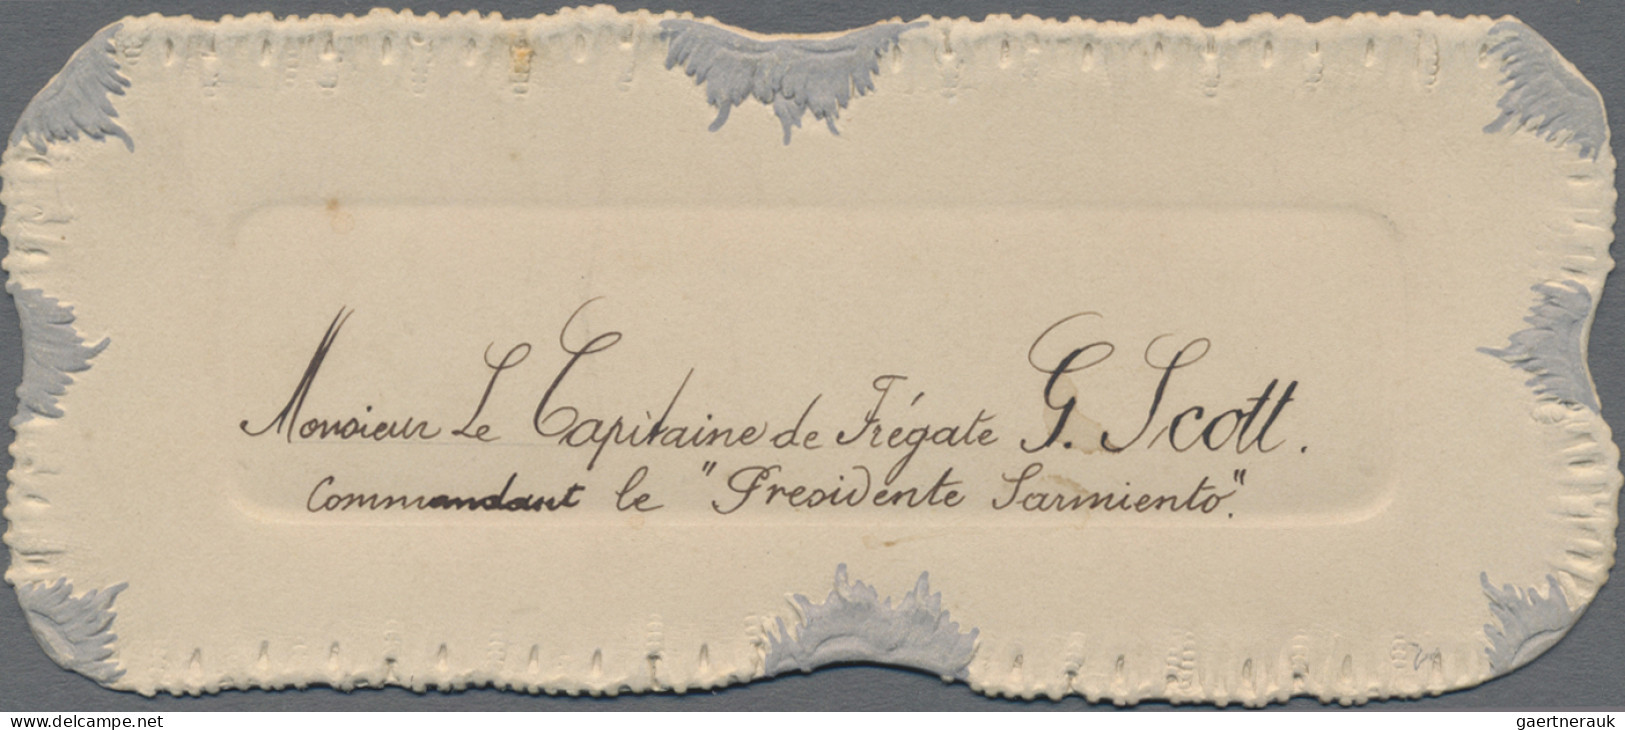 Monsieur Le Capitaine de Frégate G. Scott.
Commandant le "Presidente Sarmiento".
www.delcampe.net
gaertnerauk